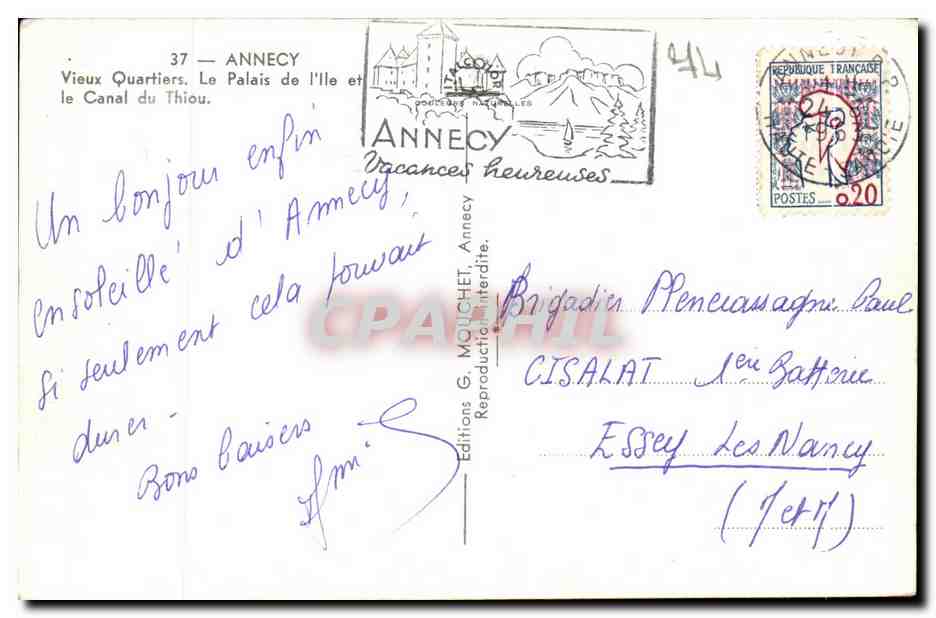 37 — ANNECY
Vieux Quartiers. Le Palais de l'Ile et
le Canal du Thiou.
COULEURS NATURELLES
ANNECY
Vacances heureuses
74
REPUBLIQUE FRANÇAISE
POSTES 0,20
HAUTE SAVOIE
Un bonjour enfin
ensoleillé d'Annecy,
si seulement cela pouvait
durer -
Bons baisers
Editions G. MOUCHET, Annecy
Reproduction interdite.
CPAPHIL
Brigadier Paul
CISALAT 1ère Batterie
Essey Les Nancy
(M et M)